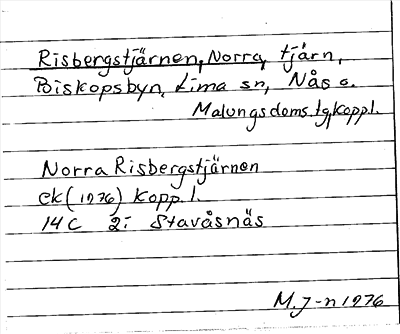 Risbergstjärnen, Norra, tjärn,
Biskopsbyn, Lima sn, Nås o.
Malungs doms.lg, Koppl.
Norra Risbergstjärnen
ek (1976) Kopp.l.
14 C 2: Stavåsnäs
M.J-n 1976